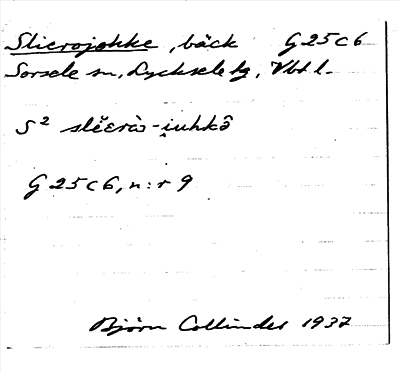 Slierojokke, bäck G25C6
Sorsele sn, Lycksele tg, Vbt l.
S² slĕerà‑i̯uhkô
G25C6, n:r 9
Björn Collinder 1937